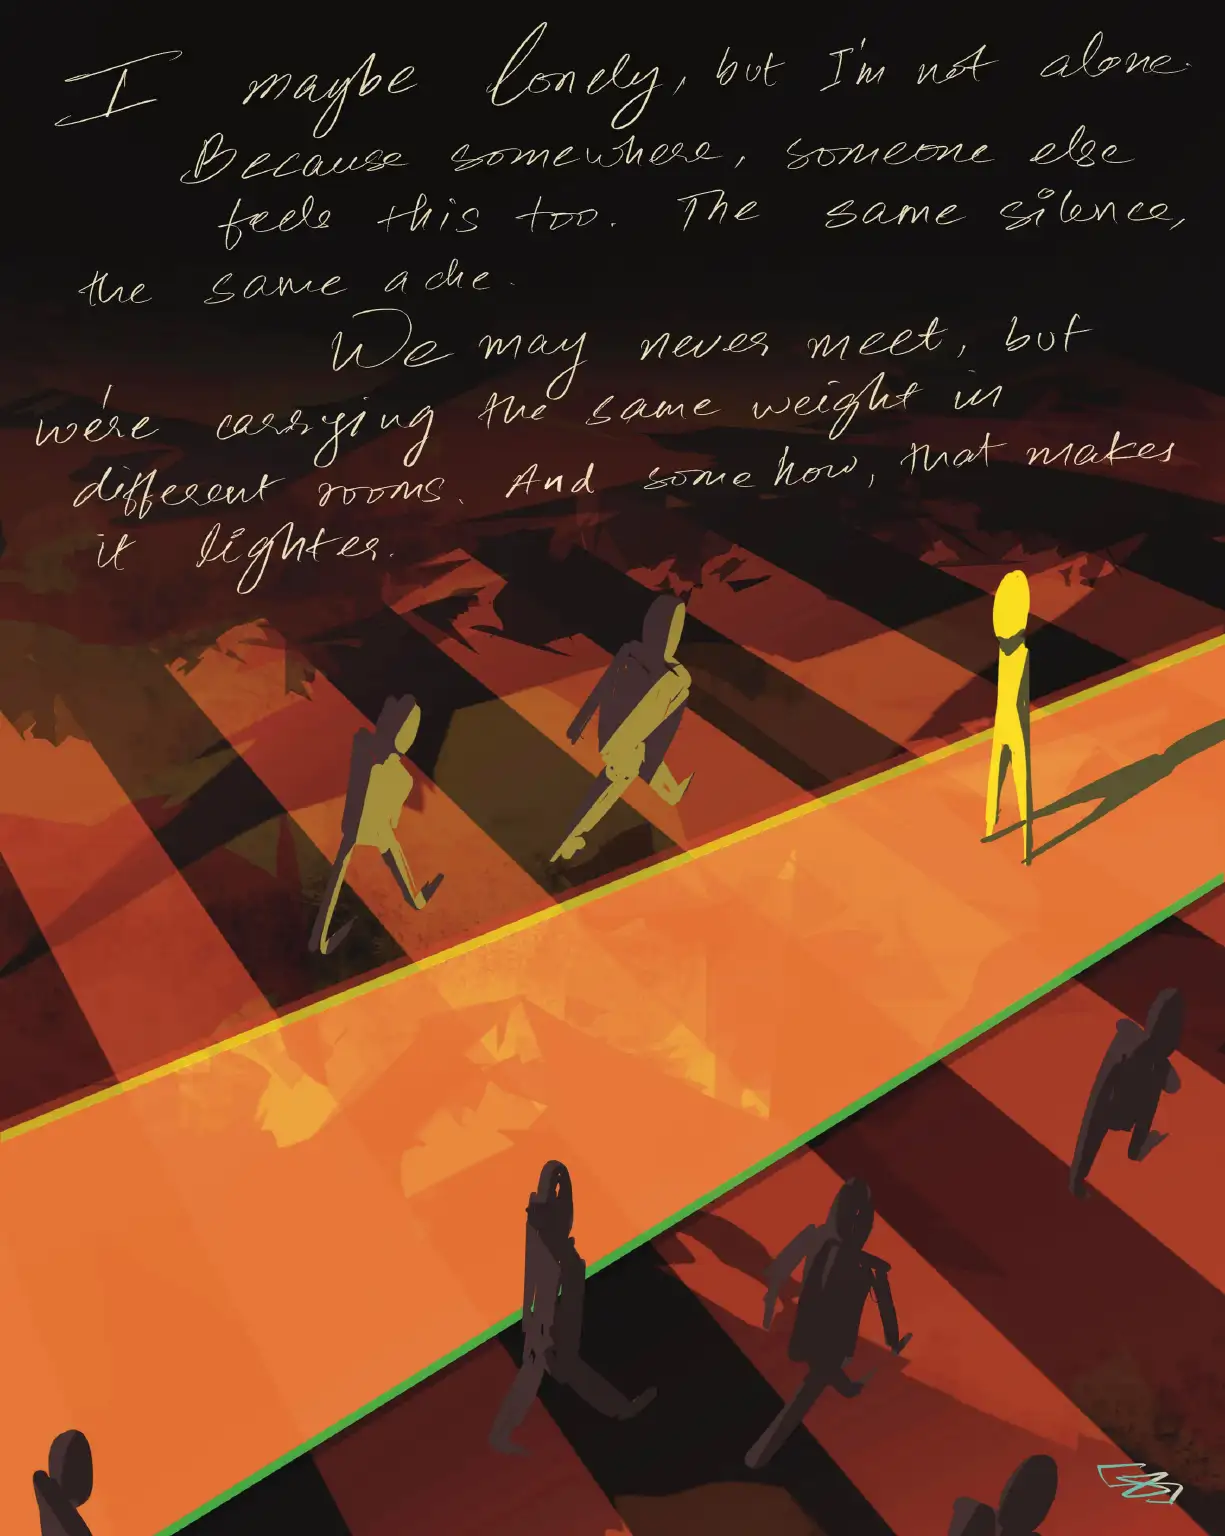 I maybe lonely, but I'm not alone.
Because somewhere, someone else
feels this too. The same silence,
the same ache.
We may never meet, but
we're carrying the same weight in
different rooms. And somehow, that makes
it lighter.